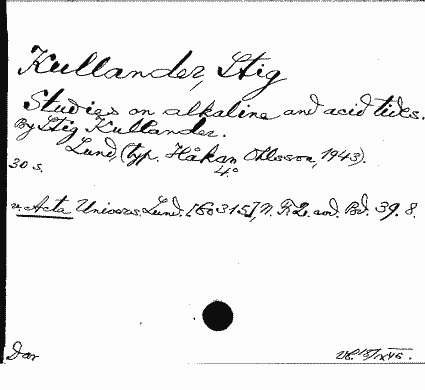 Kullander, Stig
Studies on alkaline and acid tides.
By Stig Kullander.
Lund, (typ. Håkan Ohlsson, 1943).
4°
30 s.
Acta Univers. Lund. [60315], N. F. 2. avd. Bd. 39. 8.
Dar